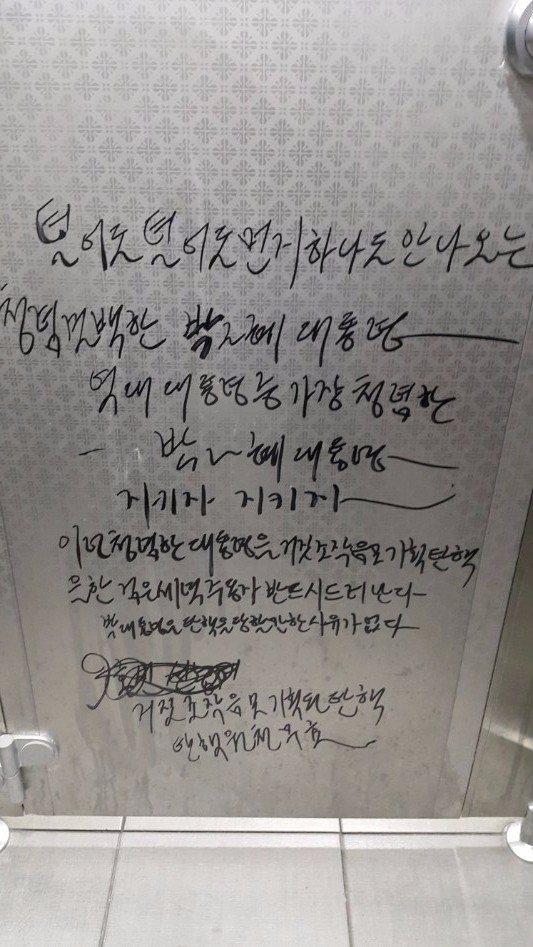 털어도 털어도 먼지 하나도 안 나오는
청렴결백한 박근혜 대통령
역대 대통령 중 가장 청렴한
박근혜 대통령
지키자 지키자
이런 청렴한 대통령을 거짓조작음모 기획탄핵
을 한 검은세력 주동자 반드시 드러난다
박대통령은 탄핵을 당할만한 사유가 없다
거짓 조작 음모 기획된 탄핵
탄핵 원천 무효